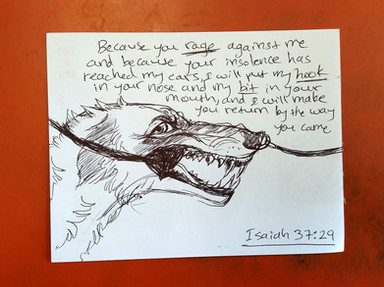 Because you rage against me
and because your insolence has
reached my ears, I will put my hook
in your nose and my bit in your
mouth, and I will make
you return by the way
you came
Isaiah 37:29